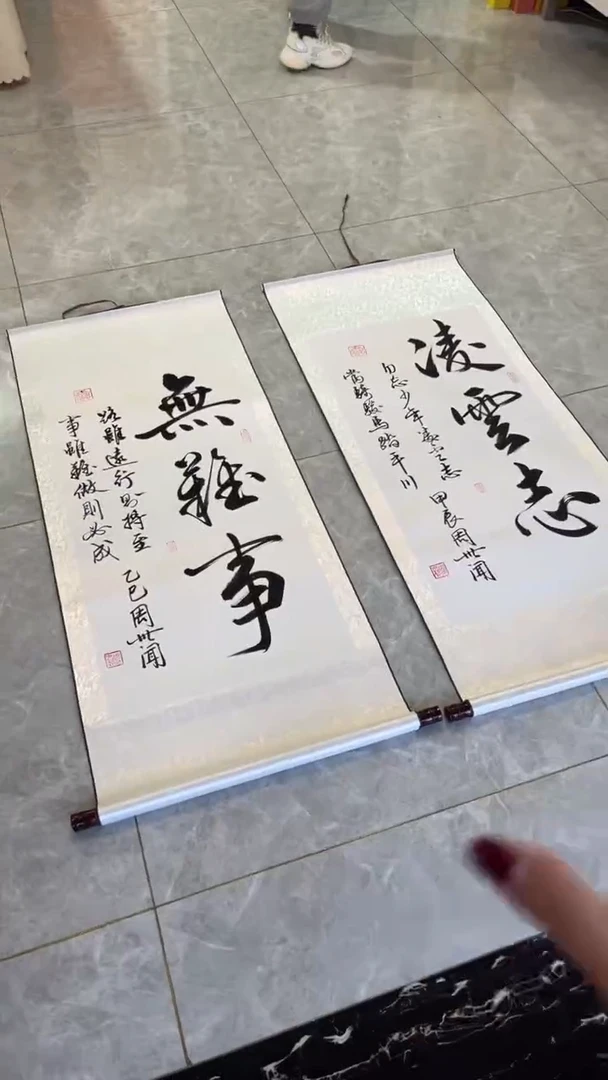 凌雲志
勿忘少年凌云志
常騎駿馬踏平川
甲辰周世闻
無難事
路雖遠行則將至
事雖難做則必成
乙巳周世闻